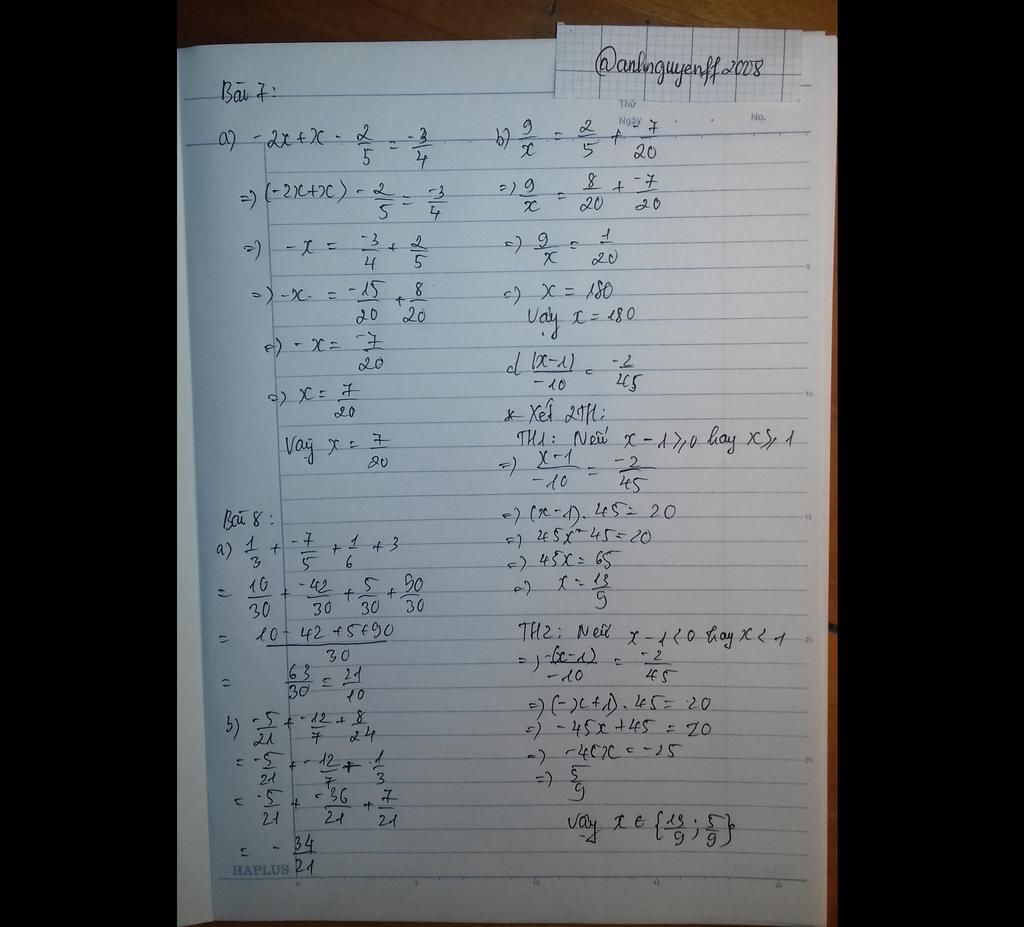 @anhnguyenff2008
Thứ
Ngày
No.
Bài 7:
a) -2x+x - 2/5 = -3/4
=) (-2x+x) - 2/5 = -3/4
=) -x = -3/4 + 2/5
=) -x = -15/20 + 8/20
=) -x = -7/20
=) x = 7/20
Vậy x = 7/20
b) 9/x = 2/5 + -7/20
=) 9/x = 8/20 + -7/20
=) 9/x = 1/20
=) x = 180
Vậy x = 180
d |x-1|/-10 = -2/45
* Xét 2TH:
TH1: Nếu x-1 ⩾ 0 hay x ⩾ 1
=) x-1/-10 = -2/45
=) (x-1). 45 = 20
=) 45x - 45 = 20
=) 45x = 65
=) x = 13/9
TH2: Nếu x-1 < 0 hay x < 1
=) -(x-1)/-10 = -2/45
=) (-x+1). 45 = 20
=) -45x + 45 = 20
=) -45x = -25
=) 5/9
Vậy x ∈ {13/9; 5/9}
Bài 8:
a) 1/3 + -7/5 + 1/6 + 3
= 10/30 + -42/30 + 5/30 + 90/30
= 10 - 42 + 5 + 90/30
= 63/30 = 21/10
b) -5/21 + -12/7 + 8/24
= -5/21 + -12/7 + 1/3
= -5/21 + -36/21 + 7/21
= - 34/21
HAPLUS